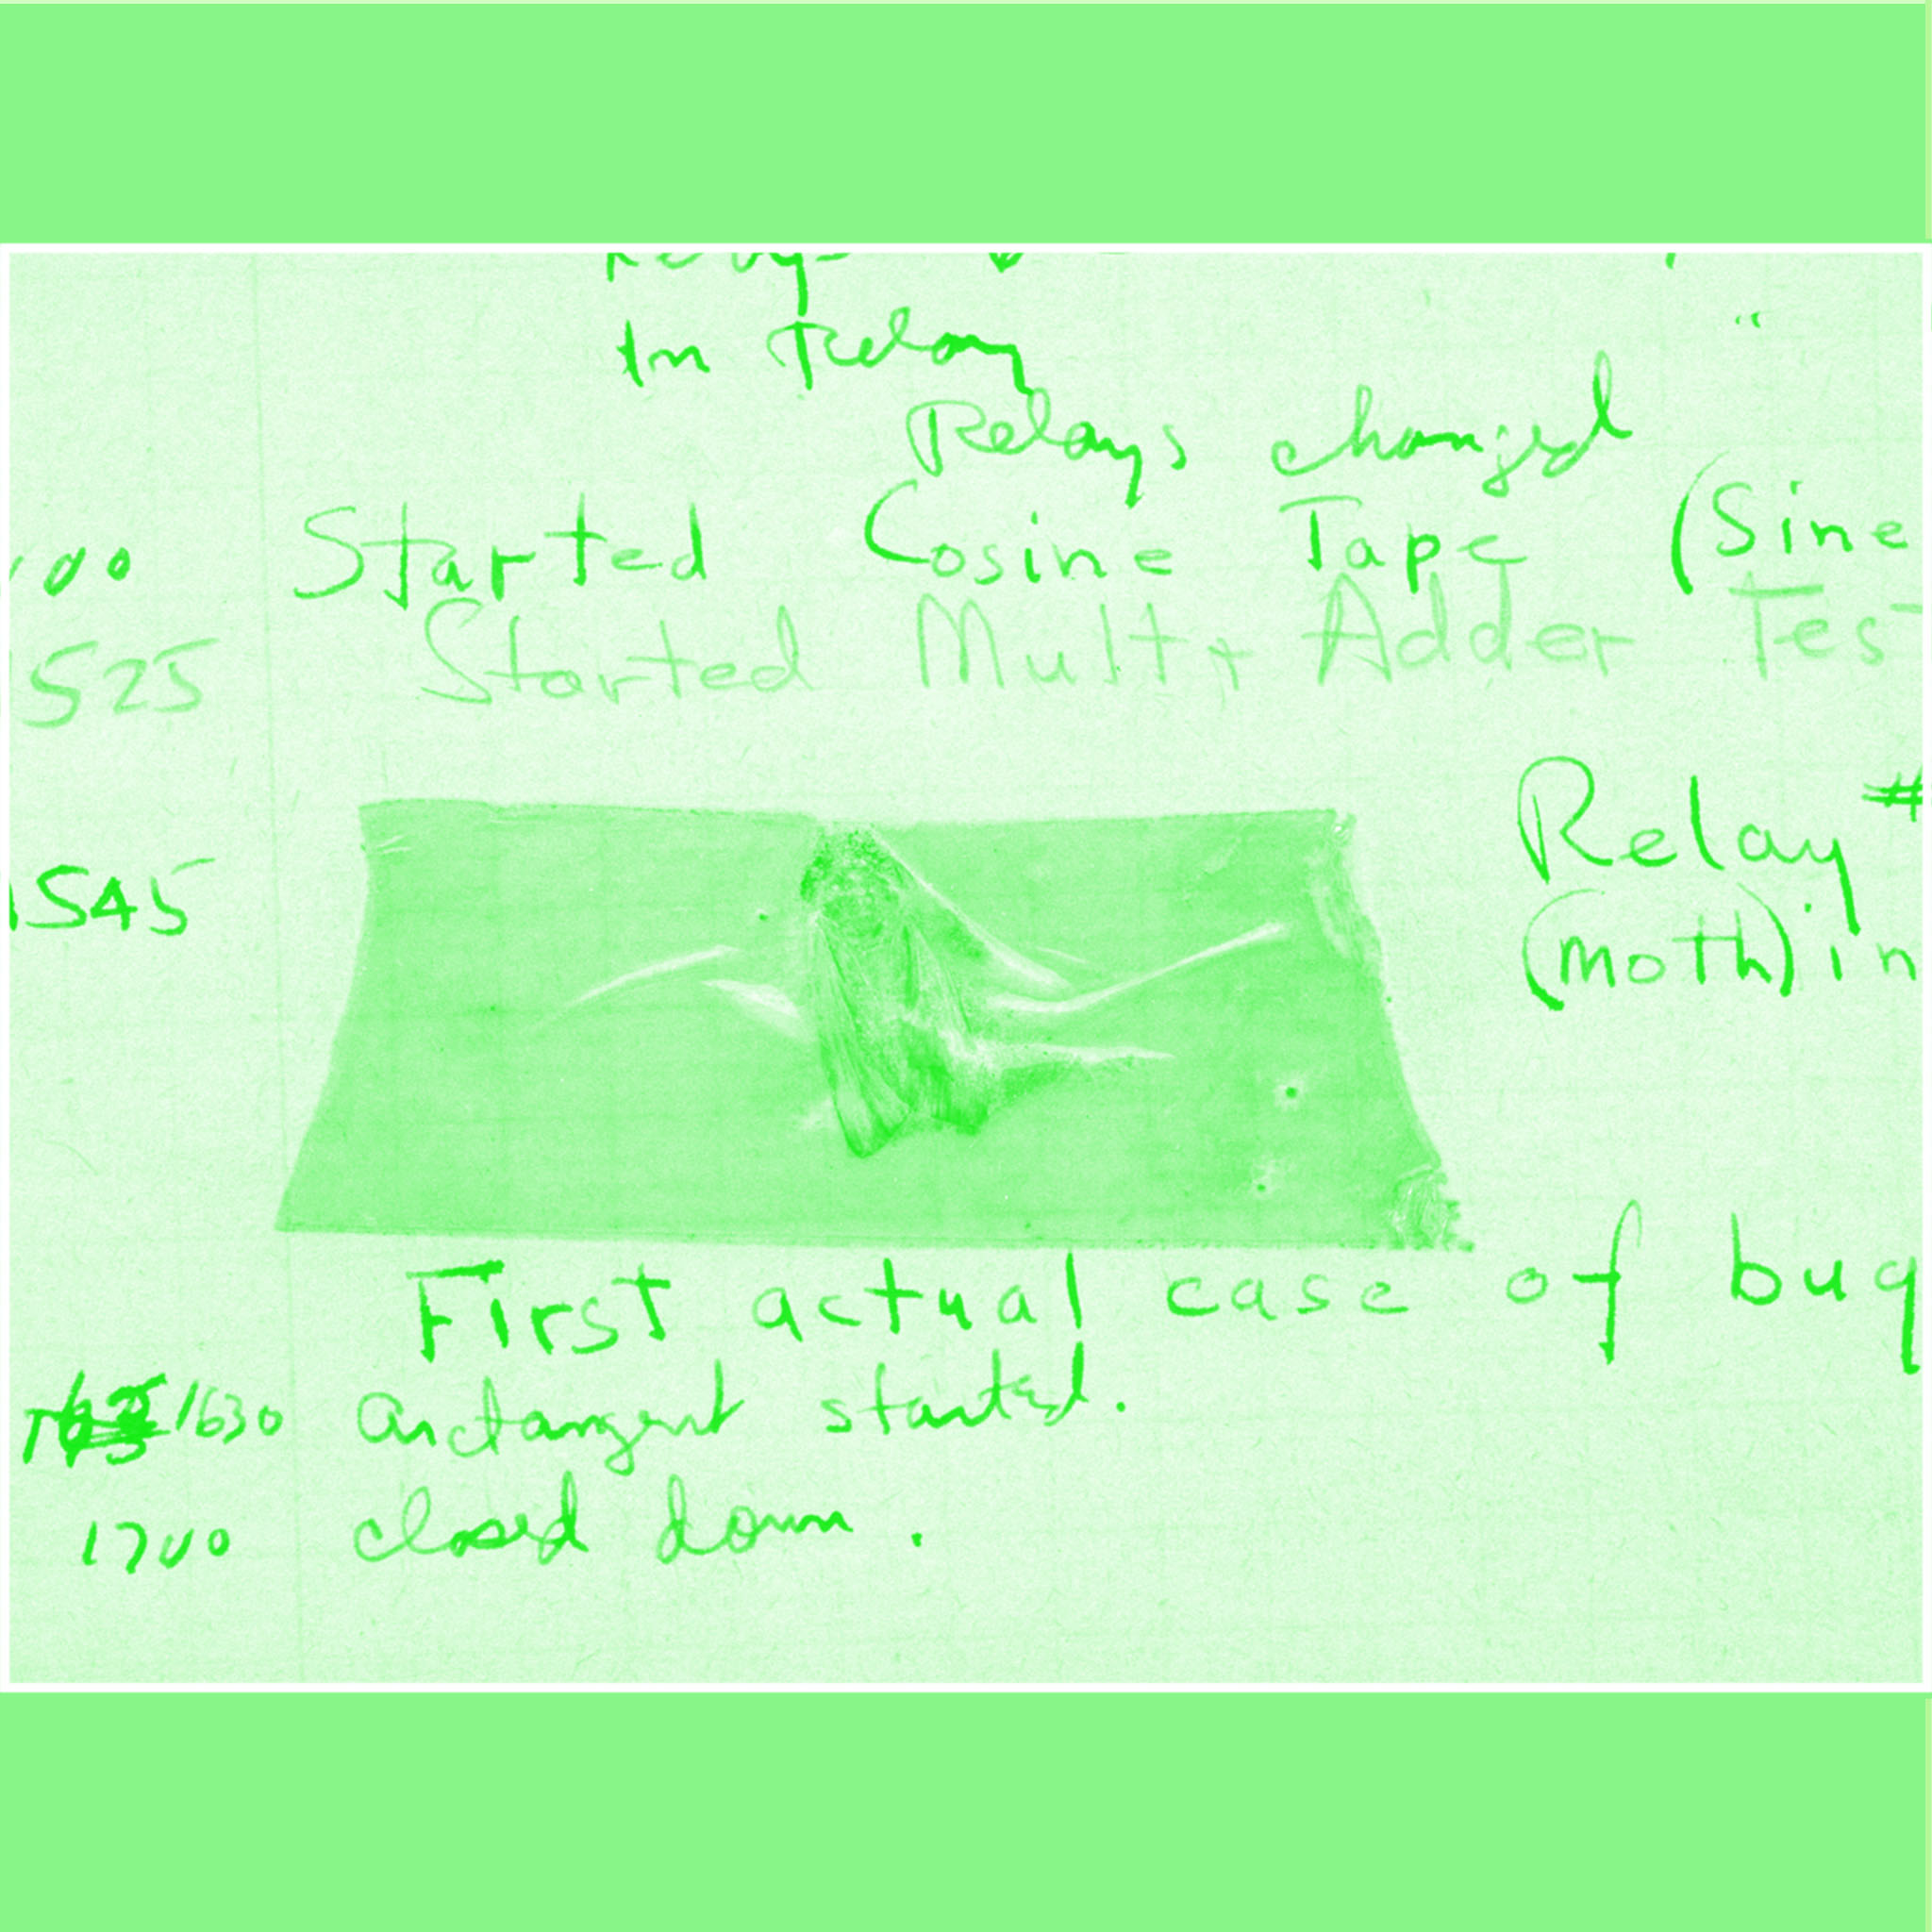 In Relay
Relays changed
Started Cosine Tape (Sine
525 Started Mult+ Adder Tes
1545 Relay #
(moth) in
First actual case of bug
1630 arctangent started.
1700 closed down.